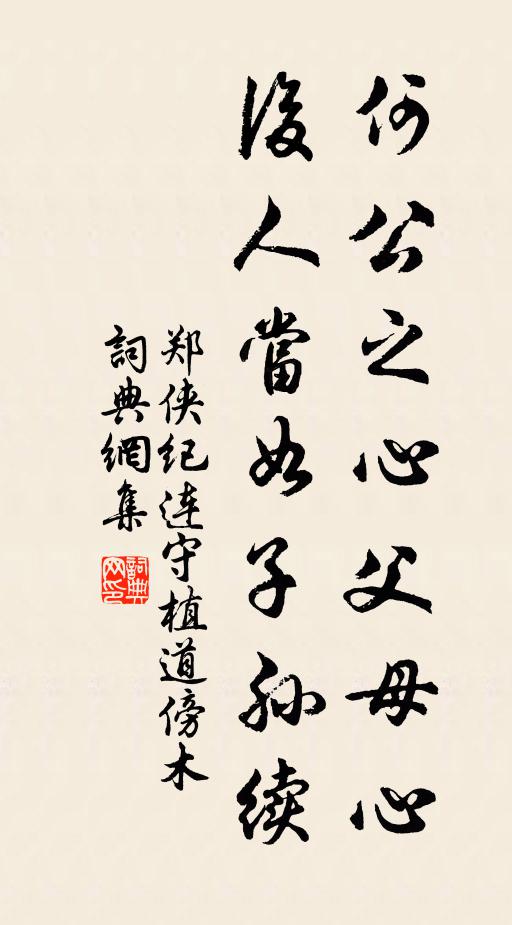 何公之心父母心
後人當如子孙续
郑侠纪连守植道傍木
詞典網集
詞典网印